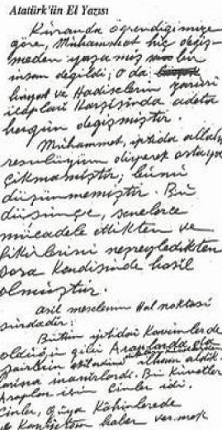 Atatürk'ün El Yazısı
Kuranda öğrendiğimize
göre, Muhammet hiç değiş-
meden yaşamış bir
insan değildi; o da
hayat ve Hadiselerin
icapları karşısında adeta
hergün değişmiştir.
Muhammet, iptida allah
resulüyüm diyerek ortaya
çıkmamıştır; bunu
düşünmemiştir. Bu
düşünce, senelerce
mücadele ettikten ve
fikirlerini neşreyledikten
sora kendisinde hasil
olmuştur.
asıl meselenin Hal noktası
şurdadır:
Bütün iptidai kavimlerde
olduğu gibi Araplarda da
şairlerin ilham aldık-
larına inanırlardı. Bu kuvvetler
Araplar için Cinler idi.
Cinler, güya Kâhinlerede
haber vermek